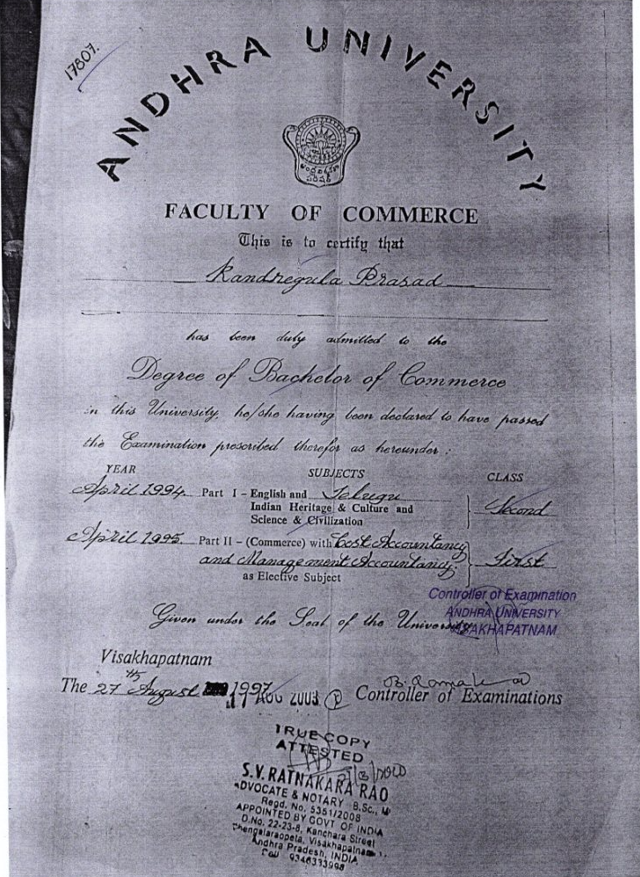 17807.
ANDHRA UNIVERSITY
FACULTY OF COMMERCE
This is to certify that
Kandregula Prasad
has been duly admitted to the
Degree of Bachelor of Commerce
in this University, he/she having been declared to have passed
the Examination prescribed therefor as hereunder :
YEAR SUBJECTS CLASS
April 1994. Part I - English and Telugu
Indian Heritage & Culture and
Science & Civilization
Second
April 1995. Part II - (Commerce) with Cost Accountancy
and Management Accountancy.
as Elective Subject
First
Controller of Examination
ANDHRA UNIVERSITY
VISAKHAPATNAM
Given under the Seal of the University
Visakhapatnam
The 27th August 1997
AUG 2003
Controller of Examinations
TRUE COPY
ATTESTED
S.V. RATNAKARA RAO
ADVOCATE & NOTARY B.Sc.,
Regd. No. 5351/2008
APPOINTED BY GOVT OF INDIA
D.No. 22-23-8, Kanchara Street
Visakhapatnam
Andhra Pradesh, INDIA
Cell 9346333998